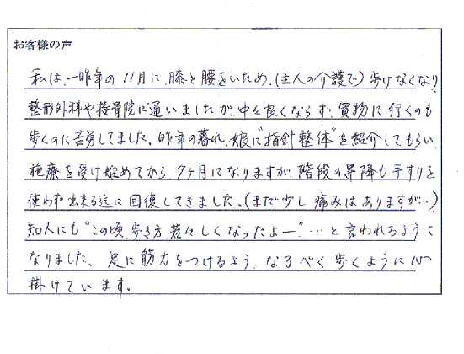 お客様の声
私は、一昨年の11月に、膝と腰をいため、(主人の介護で)歩けなくなり
整形外科や接骨院に通いましたが、中々良くならず、買物に行くのも
歩くのに苦労してました。昨年の暮れ、娘に"指針整体"を紹介してもらい
施療を受け始めてから7ヶ月になりますが階段の昇降も手すりを
使わず出来る迄に回復してきました。(まだ少し痛みはありますが…)
知人にも"この頃、歩き方若々しくなったよー"…と言われるように
なりました、足に筋力をつけるよう、なるべく歩くように心
掛けています。